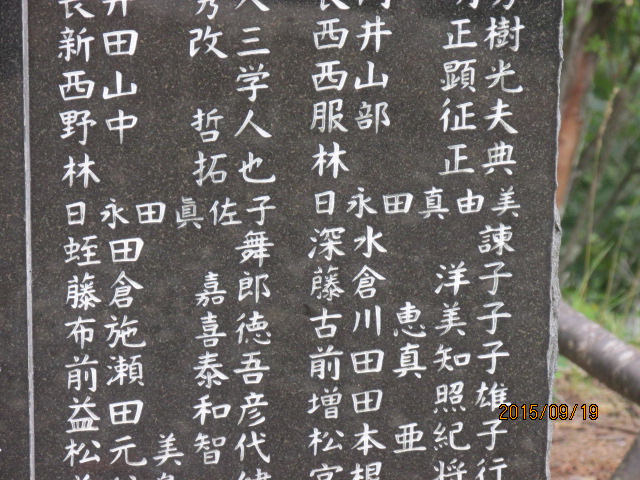 新田改三
西山学
野中哲人
林拓也
日永田眞佐子
蛭田舞
藤倉嘉郎
布施喜徳
前瀬泰吾
益田和彦
松元美智代
西井正樹
西山顕光
服部征夫
林正典
日永田真由美
深水諫
藤倉洋子
古川恵美子
前田真知子
増田照雄
松本亜紀子
宮根将行
2015/09/19